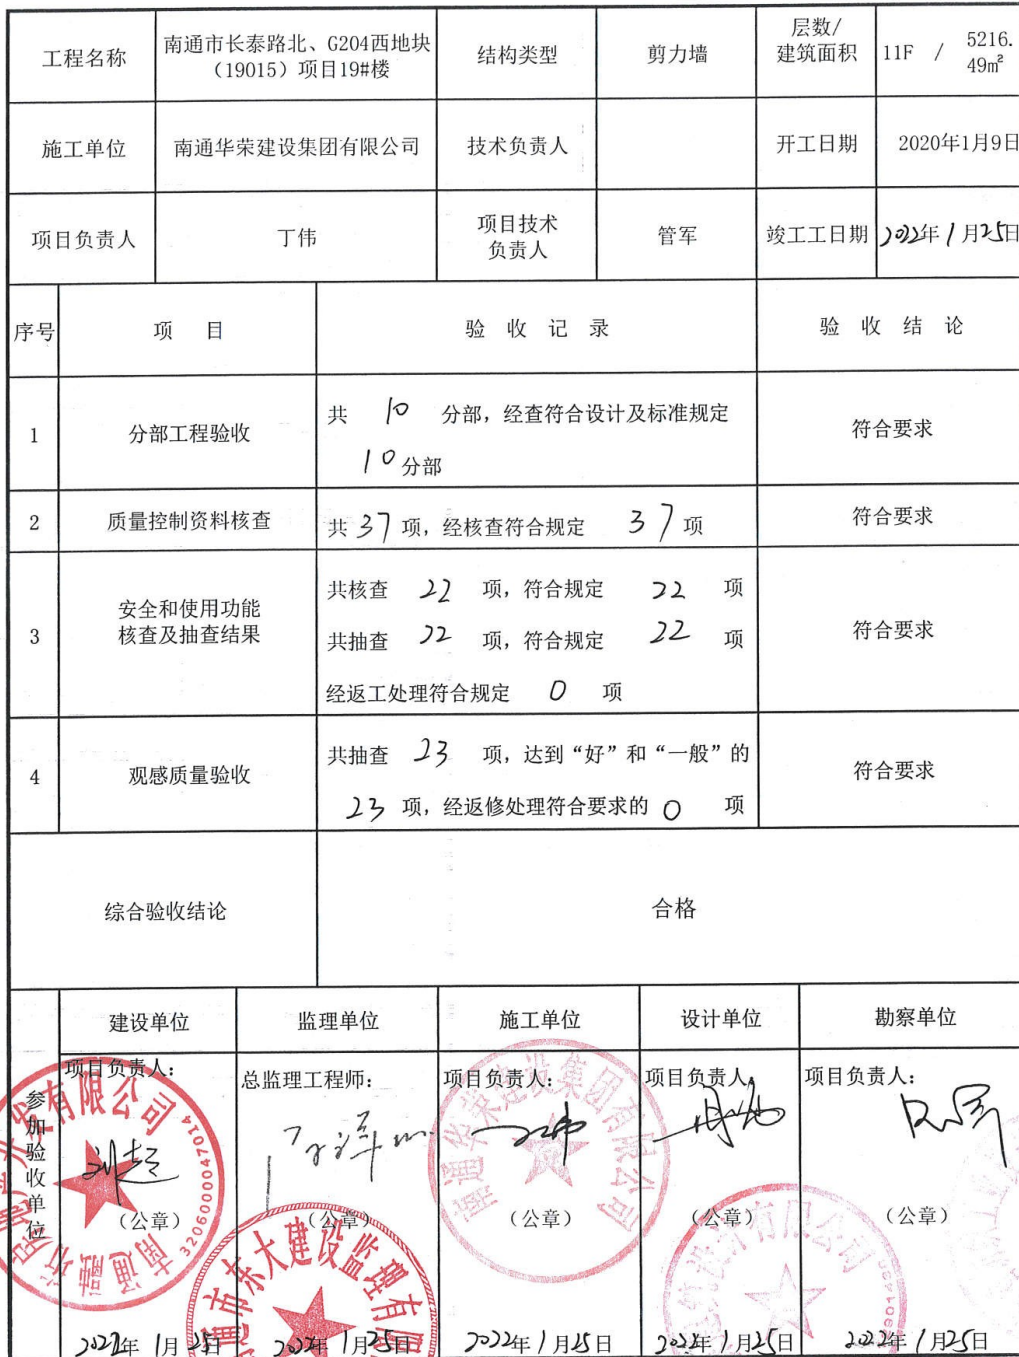 工程名称
南通市长泰路北、G204西地块
（19015）项目19#楼
结构类型
剪力墙
层数/
建筑面积
11F / 5216.
49㎡
施工单位
南通华荣建设集团有限公司
技术负责人
开工日期
2020年1月9日
项目负责人
丁伟
项目技术
负责人
管军
竣工工日期
2022年1月25日
序号
项 目
验 收 记 录
验 收 结 论
1
分部工程验收
共 10 分部，经查符合设计及标准规定
10分部
符合要求
2
质量控制资料核查
共37项，经核查符合规定 37项
符合要求
3
安全和使用功能
核查及抽查结果
共核查 22 项，符合规定 22 项
共抽查 22 项，符合规定 22 项
经返工处理符合规定 0 项
符合要求
4
观感质量验收
共抽查 23 项，达到“好”和“一般”的
23 项，经返修处理符合要求的 0 项
符合要求
综合验收结论
合格
参加验收单位
建设单位
监理单位
施工单位
设计单位
勘察单位
项目负责人：
总监理工程师：
项目负责人：
项目负责人：
项目负责人：
（公章）
（公章）
（公章）
（公章）
（公章）
2022年1月25日
2022年1月25日
2022年1月25日
2022年1月25日
2022年1月25日
南通华荣建设集团有限公司
东大建设监理有限
有限公司
3206000047014